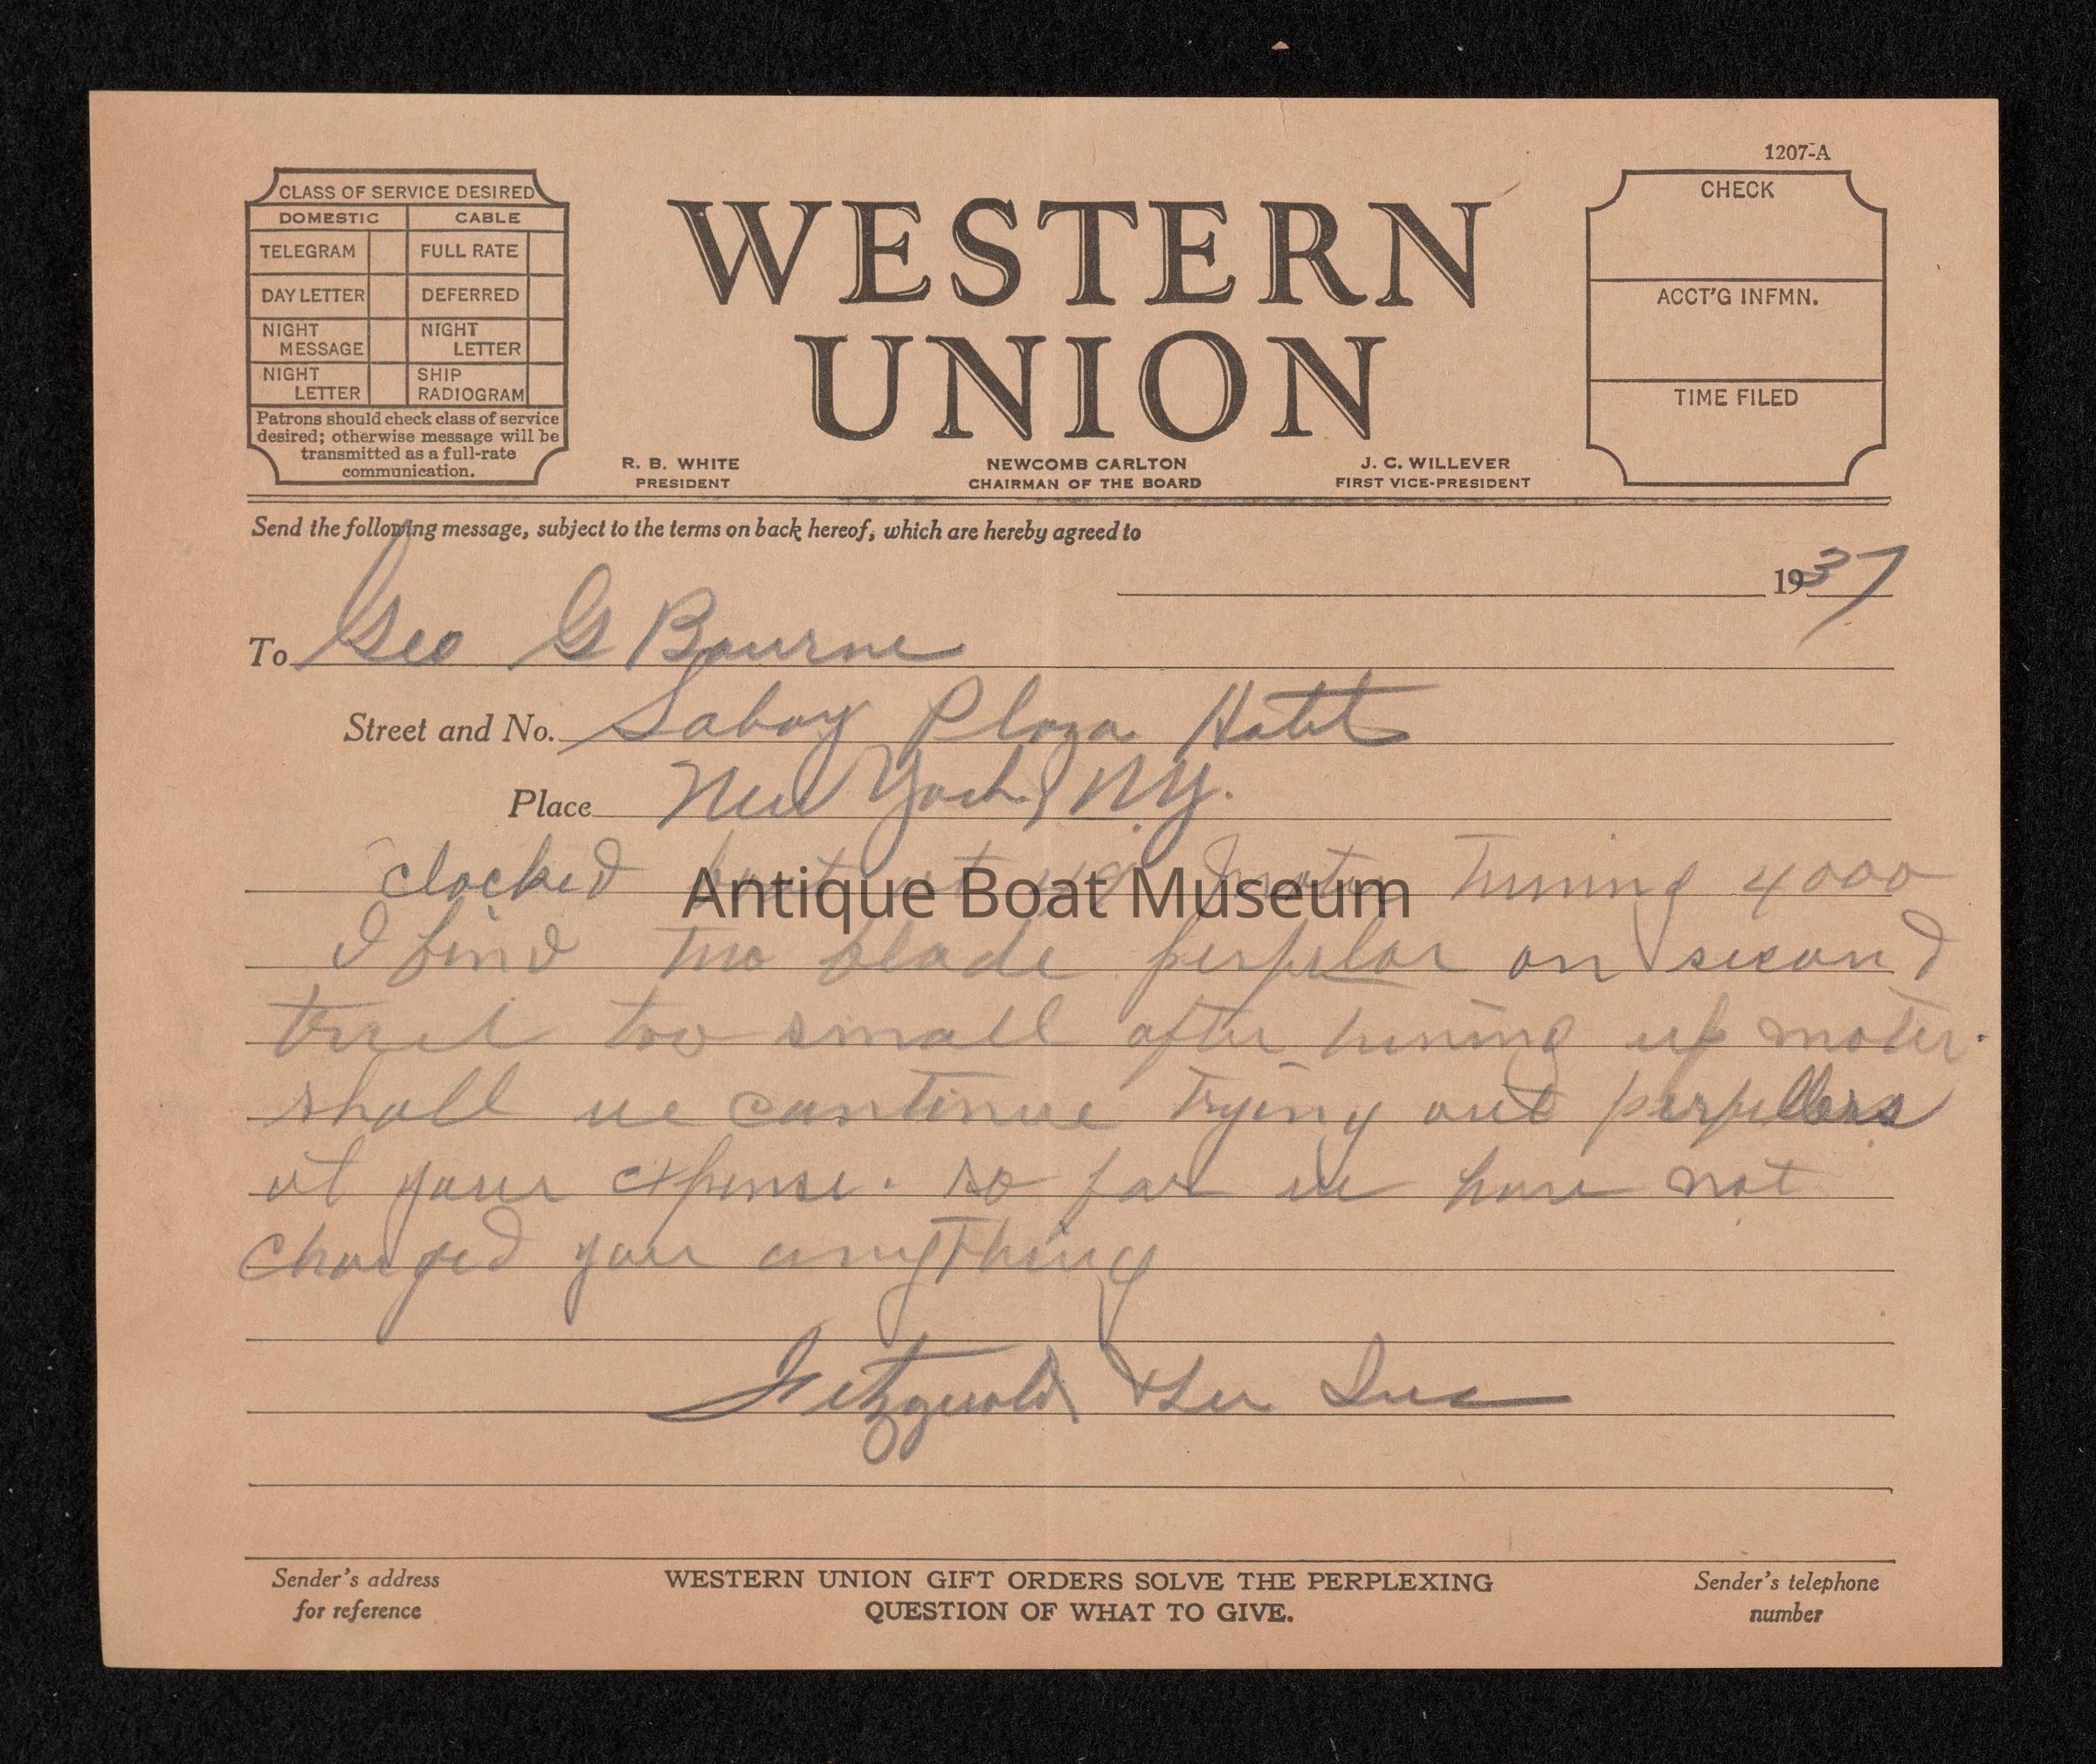 1207-A
CLASS OF SERVICE DESIRED
DOMESTIC CABLE
TELEGRAM FULL RATE
DAY LETTER DEFERRED
NIGHT MESSAGE NIGHT LETTER
NIGHT LETTER SHIP RADIOGRAM
Patrons should check class of service
desired; otherwise message will be
transmitted as a full-rate
communication.
WESTERN
UNION
R. B. WHITE
PRESIDENT
NEWCOMB CARLTON
CHAIRMAN OF THE BOARD
J. C. WILLEVER
FIRST VICE-PRESIDENT
CHECK
ACCT'G INFMN.
TIME FILED
Send the following message, subject to the terms on back hereof, which are hereby agreed to
1937
To Geo G Bourne
Street and No. Savoy Plaza Hotel
Place New York, N.Y.
clocked boat at motor turning 4000
Antique Boat Museum
I find two blade perpelor on second
trial too small after tuning up motor.
shall we continue trying out perpellers
at your expense. so far we have not
charged you anything
Fitzgerald & Lee Inc
Sender's address
for reference
WESTERN UNION GIFT ORDERS SOLVE THE PERPLEXING
QUESTION OF WHAT TO GIVE.
Sender's telephone
number